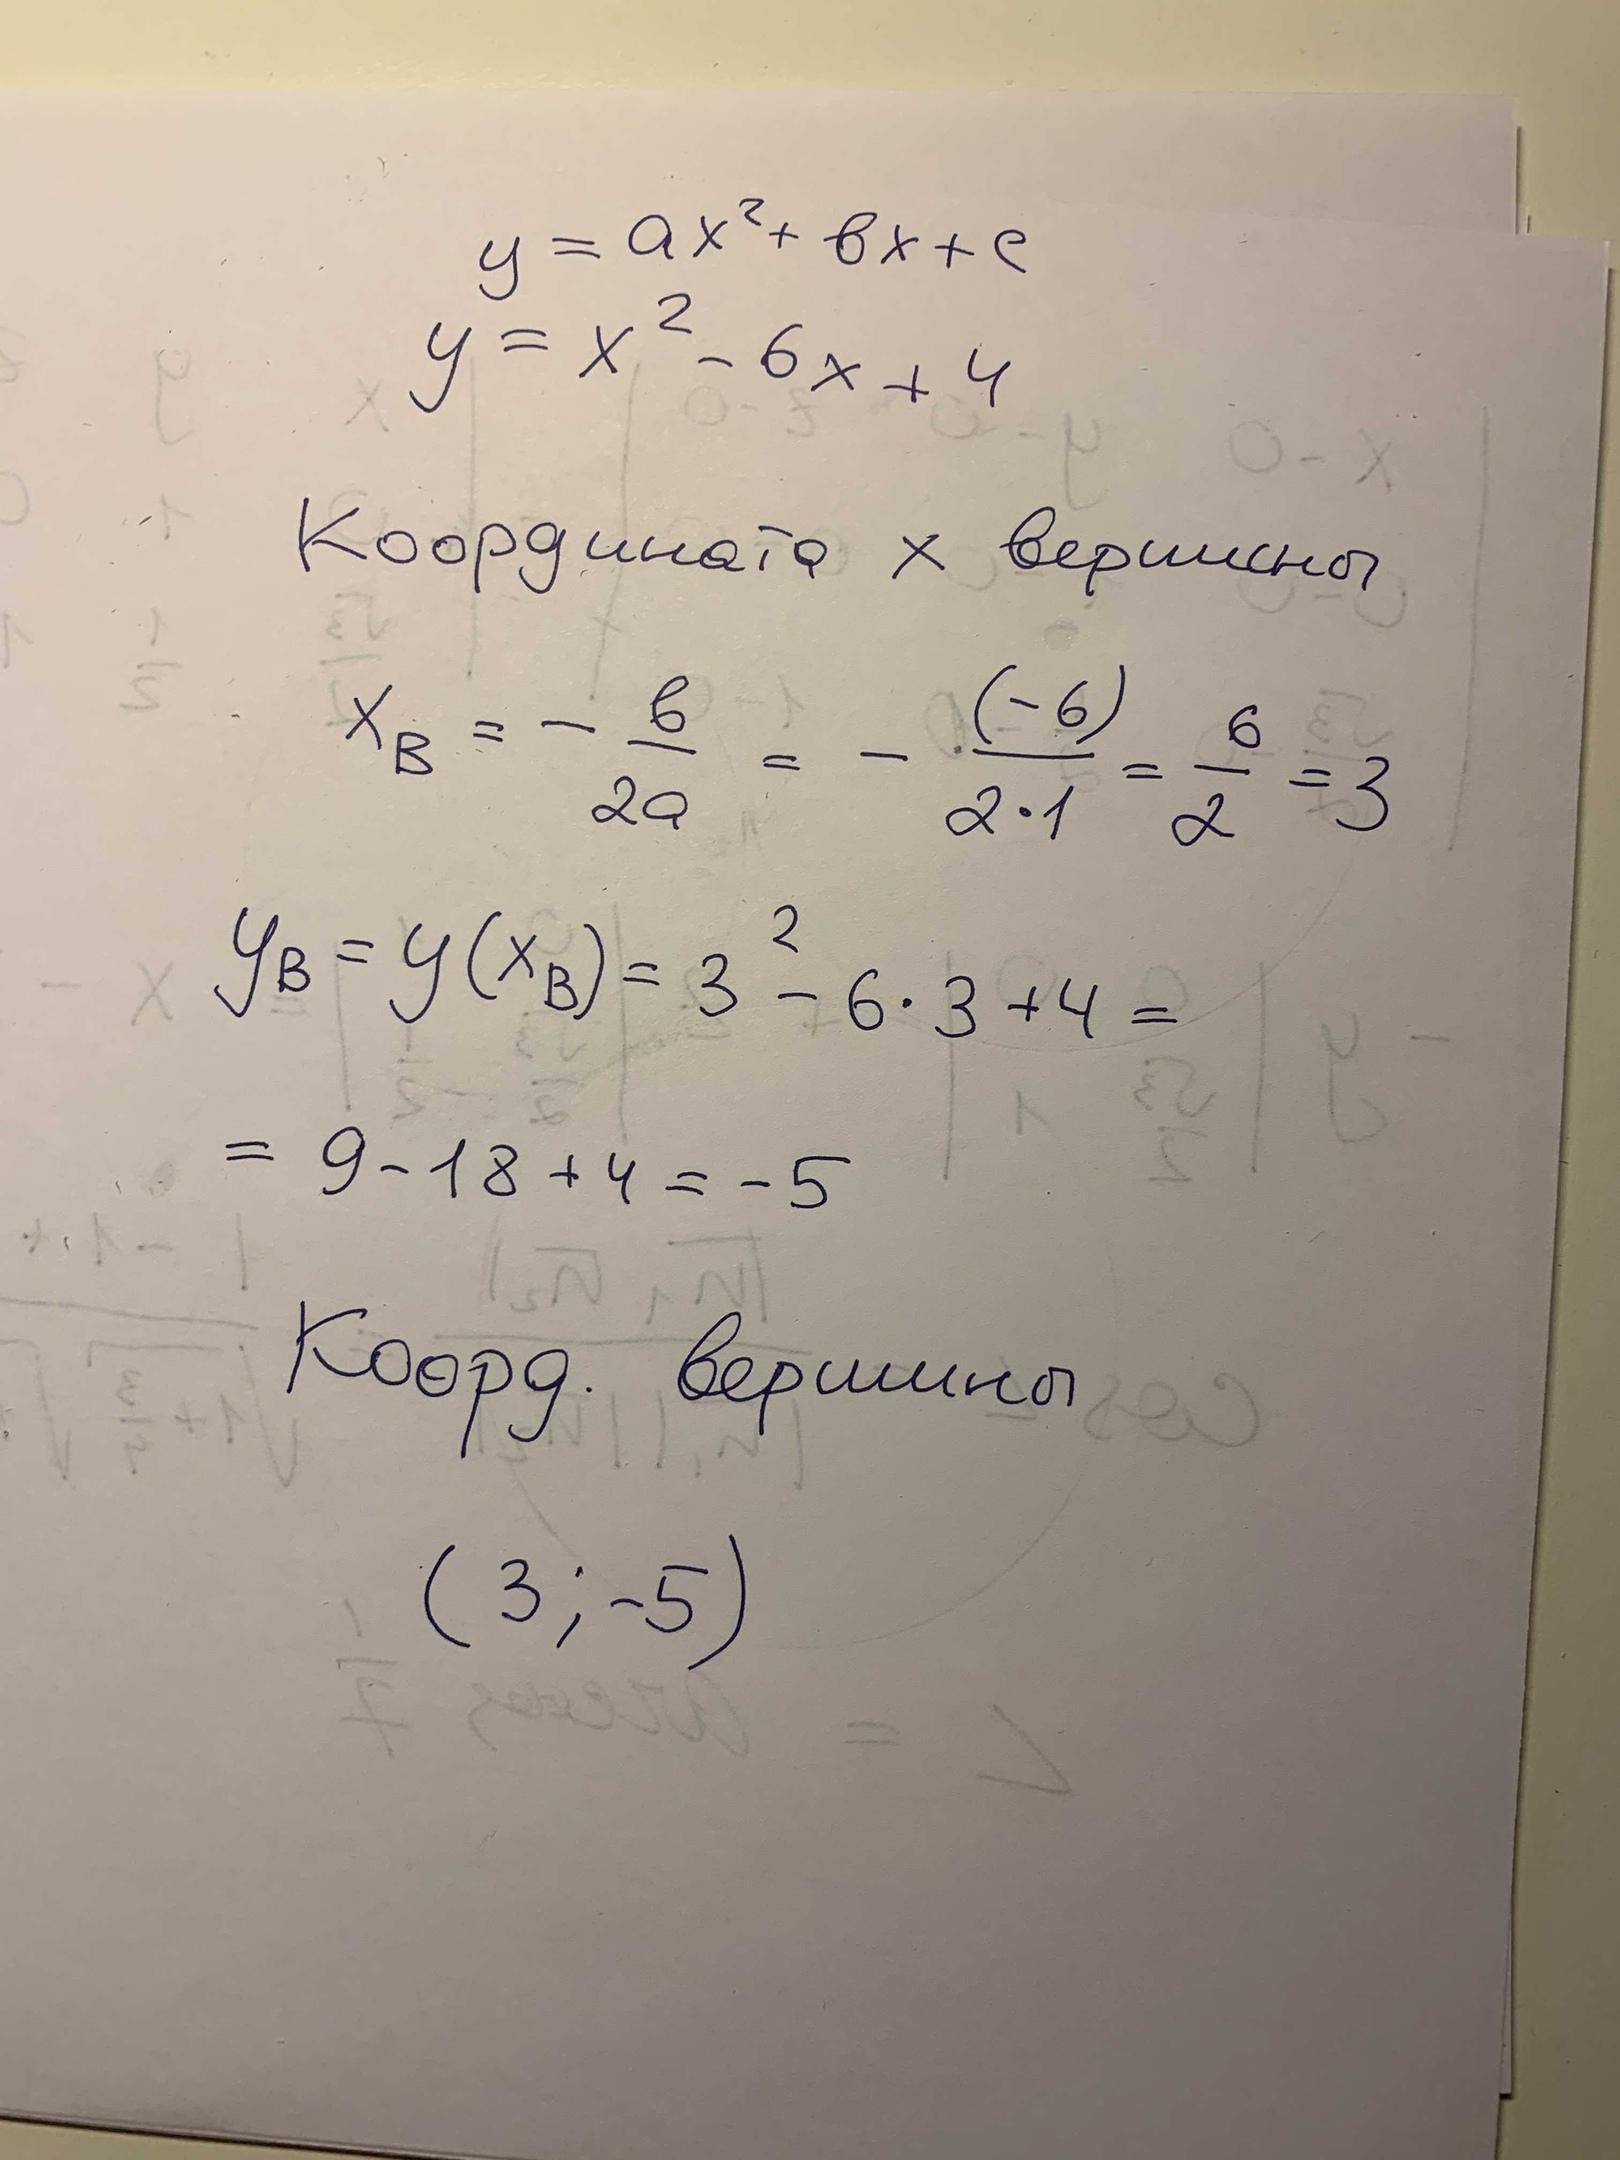 y = ax² + bx + c
y = x² - 6x + 4
Координата x вершины
x_B = - b/2a = - (-6)/2·1 = 6/2 = 3
y_B = y(x_B) = 3² - 6·3 + 4 =
= 9 - 18 + 4 = -5
Коорд. вершины
(3; -5)